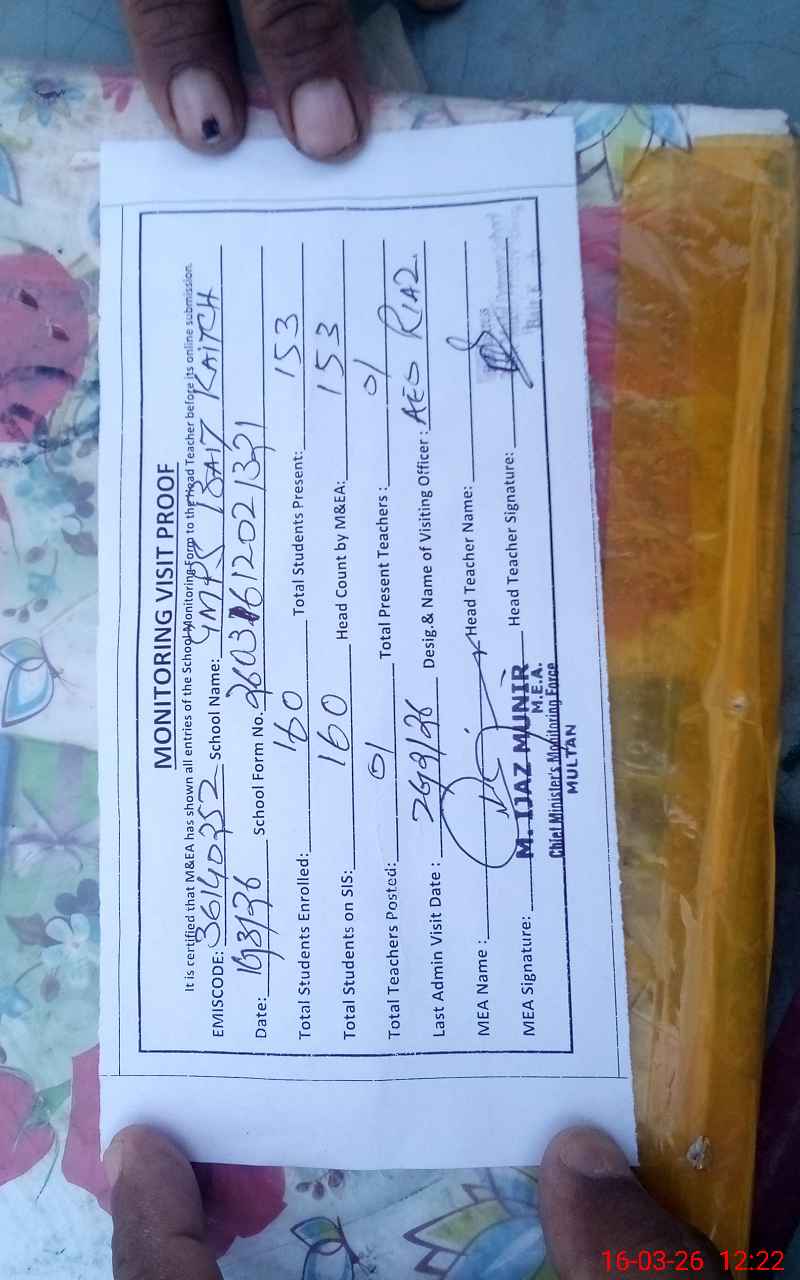 MONITORING VISIT PROOF
It is certified that M&EA has shown all entries of the School Monitoring Form to the Head Teacher before its online submission.
EMISCODE: 36140252 School Name: GMPS BAIT KAITCH
Date: 16/3/26 School Form No. 26031612021321
Total Students Enrolled: 160 Total Students Present: 153
Total Students on SIS: 160 Head Count by M&EA: 153
Total Teachers Posted: 01 Total Present Teachers : 01
Last Admin Visit Date : Desig.& Name of Visiting Officer : AEO RIAZ
MEA Name : Head Teacher Name:
MEA Signature: Head Teacher Signature:
M. IJAZ MUNIR
M.E.A.
Chief Minister's Monitoring Force
MULTAN
16-03-26 12:22